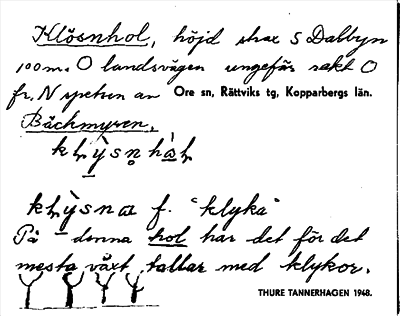 Klösnhol, höjd strax S Dalbyn
100 m. O landsvägen ungefär rakt O
fr. N spetsen av Ore sn, Rättviks tg, Kopparbergs län.
Bäckmyren.
f. "klyka"
På denna hol har det för det
mesta växt tallar med klykor.
THURE TANNERHAGEN 1948.